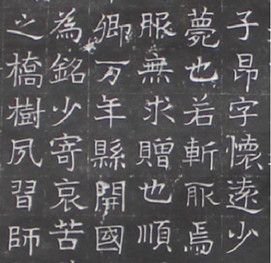 子昂字懷遠少
薨也若斬焉
服無求贈也順
卿万年縣開國
為銘少寄哀苦
之橋樹夙習師